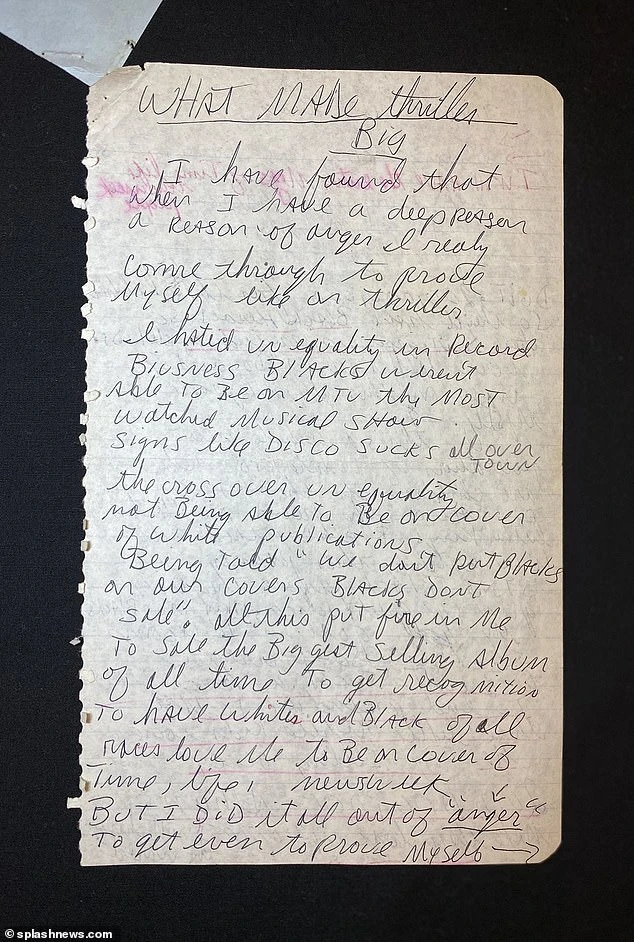 WHAT MADE thriller
Big
I have found that
when I have a deep REASON
a REASON of anger I realy
come through to prove
Myself like on thriller
I hated un equality in Record
Biusness BlAcks werent
Able To Be on MTV the MOST
watched Musical SHOW.
Signs like DISCO SUCKS all over
TOWN
the cross over un equality
not Being Able To Be on cover
of white publications
Being Told "we don't put BlAcks
on our covers BLACKS DONT
sale". all this put fire in Me
To Sale the Biggest Selling Album
of all time To get recognition
To have whites and BLACK of all
races love Me to Be on Cover of
Time, life, newsweek
BUT I DiD it all out of "anger"
To get even to prove Myself →
© splashnews.com